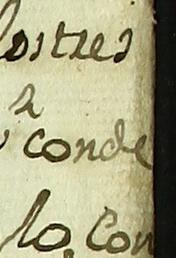 ostres
a
conde
lo. Con